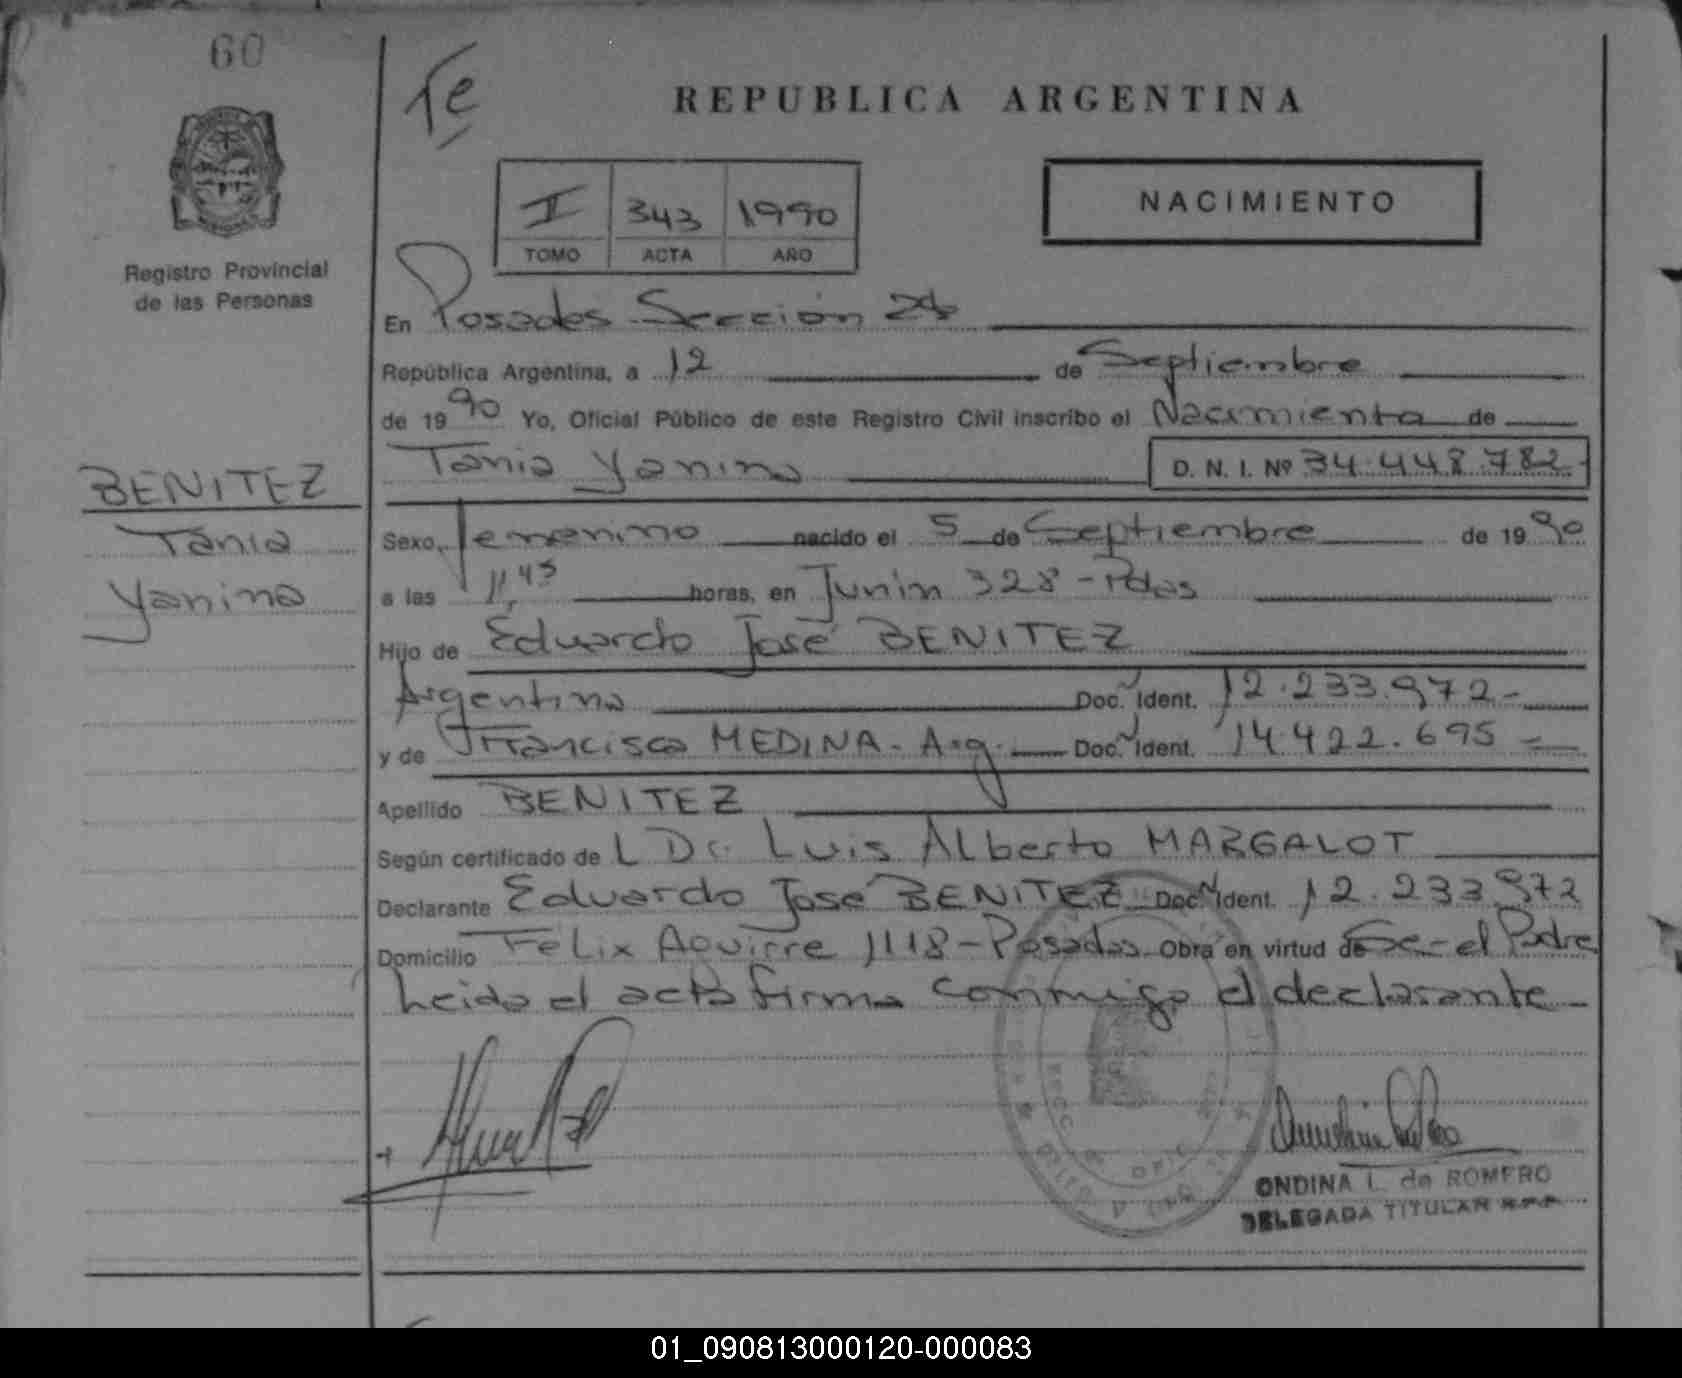 60
Te
REPUBLICA ARGENTINA
I 343 1990
TOMO ACTA AÑO
NACIMIENTO
Registro Provincial
de las Personas
En Posadas Sección 2ª
República Argentina, a 12 de Septiembre
de 1990 Yo, Oficial Público de este Registro Civil inscribo el Nacimiento de
Tania Yanina D. N. I. Nº 34.448.782-
BENITEZ
Tania
Yanina
Sexo, femenino nacido el 5 de Septiembre de 1990
a las 11,45 horas, en Junín 328 - Pdas
Hijo de Eduardo José BENITEZ
Argentino Doc. Ident. 12.233.972-
y de Francisca MEDINA - Arg. Doc. Ident. 14.422.695 -
Apellido BENITEZ
Según certificado de L Dr. Luis Alberto MARGALOT
Declarante Eduardo José BENITEZ Doc. Ident. 12.233.972
Domicilio Félix Aguirre 1118 - Posadas Obra en virtud de Ser el Padre
Leida el acta firma conmigo el declarante -
ONDINA L. de ROMERO
DELEGADA TITULAR R.P.P.
01_090813000120-000083